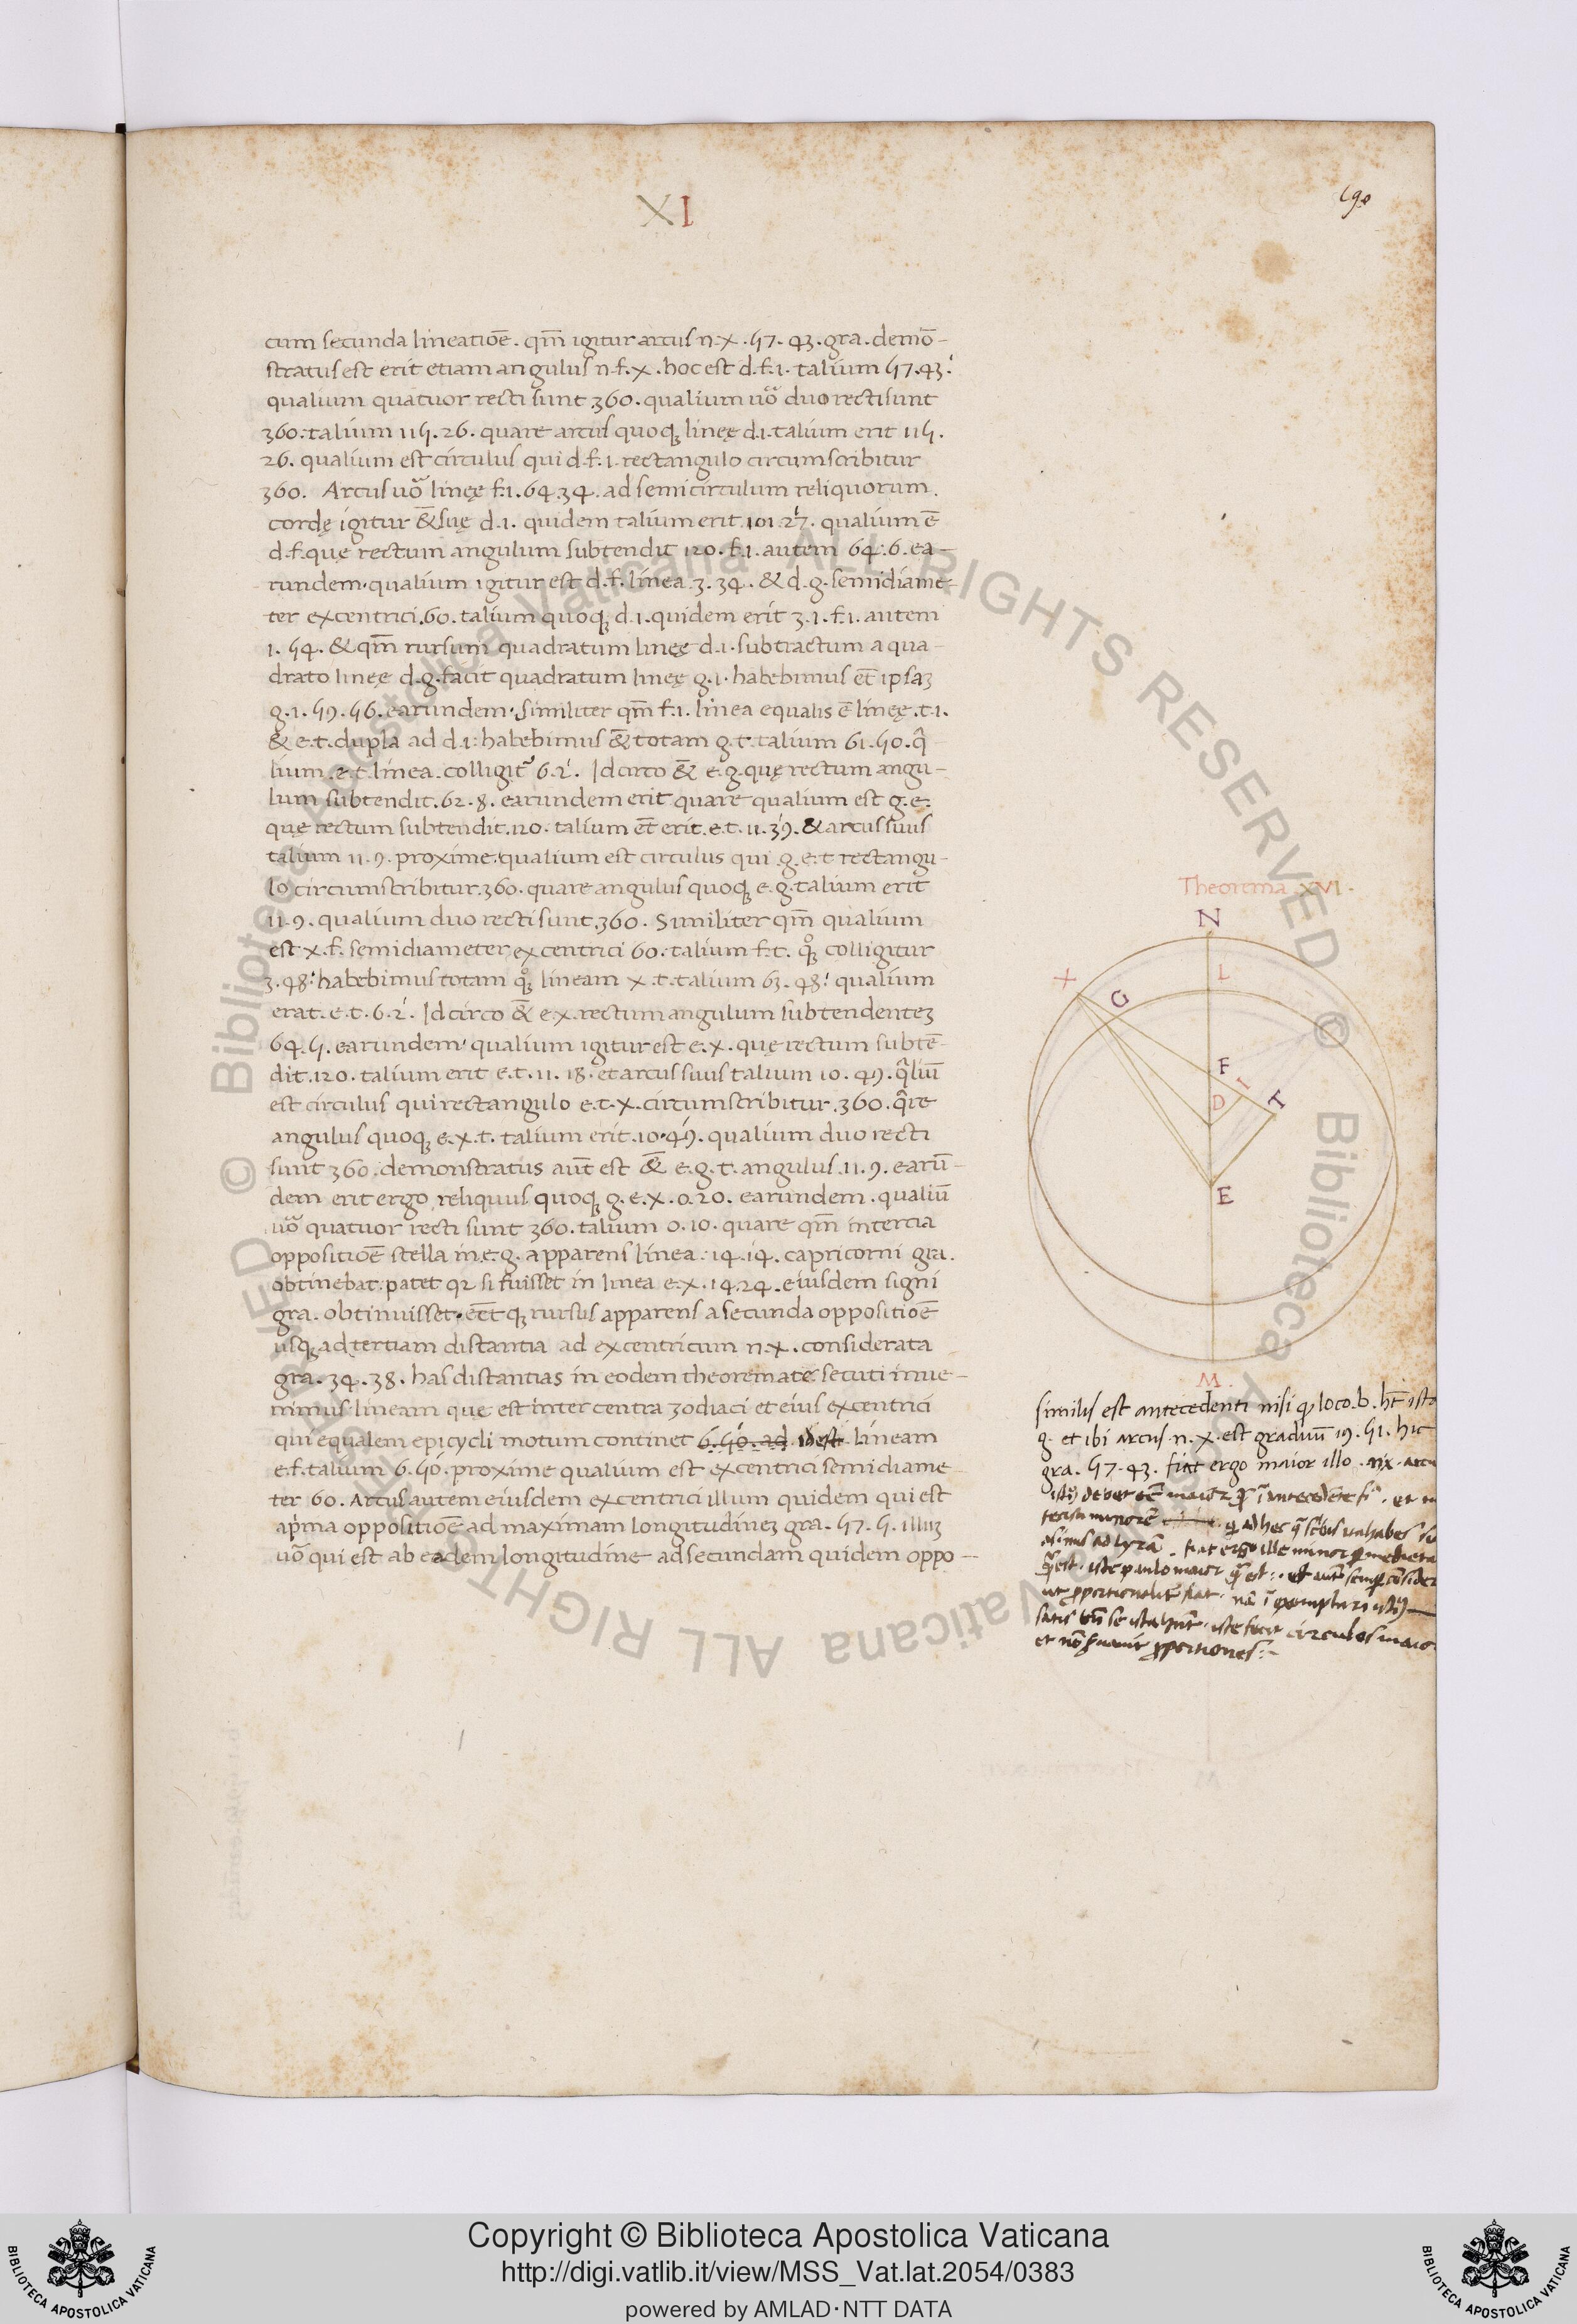 XI
190
cum secunda lineatiōe. qm̄ igitur arcus n.x. 57. 43. gra. demō-
stratus est erit etiam angulus n.f.x. hoc est d.f.i. talium 57.43.
qualium quatuor recti sunt 360. qualium uō duo recti sunt
360. talium 115. 26. quare arcus quoqʒ lineę d.i. talium erit 115.
26. qualium est circulus qui d.f.i. rectangulo circumscribitur
360. Arcus uō lineę f.i. 64.34. ad semicirculum reliquorum.
cordę igitur & suę d.i. quidem talium erit 101 27. qualium ē
d.f. quę rectum angulum subtendit 120. f.i. autem 64. 6. ea-
rundem. qualium igitur est d.f. linea 3. 34. & d.g. semidiame-
ter excentrici 60. talium quoqʒ d.i. quidem erit 3. 1. f.i. autem
1. 54. & qm̄ rursum quadratum lineę d.i. subtractum a qua-
drato lineę d.g. facit quadratum lineę g.i. habebimus et̄ ipsaʒ
g.i. 59. 56. earundem. similiter qm̄ f.i. linea equalis ē lineę .t.i.
& e.t. dupla ad d.i: habebimus & totam g.t. talium 61. 50. q̄-
lium .e.t. linea. colligit᷑ 6. 2. Idcirco & e.g. quę rectum angu-
lum subtendit. 62. 8. earundem erit quare qualium est g.e.
que rectum subtendit. 120. talium et̄ erit. e.t. 11. 39. & arcus suus
talium 11. 9. proxime. qualium est circulus qui .g.e.t rectangu-
lo circumscribitur. 360. quare angulus quoqʒ e.g. talium erit
11. 9. qualium duo recti sunt. 360. Similiter qm̄ qualium
est x.f. semidiameter excentrici 60. talium f.t. qʒ colligitur
3. 48. habebimus totam qʒ lineam x.t. talium 63. 48. qualium
erat. e.t. 6. 2. Idcirco & e.x. rectum angulum subtendenteʒ
64. 5. earundem. qualium igitur est e.x. quę rectum subtē-
dit. 120. talium erit e.t. 11. 18. et arcus suus talium 10. 49. q̄liū
est circulus qui rectangulo e.t.x. circumscribitur. 360. q̄re
angulus quoqʒ e.x.t. talium erit. 10. 49. qualium duo recti
sunt 360. demonstratus aut̄ est & e.g.t. angulus. 11. 9. earū-
dem erit ergo reliquus quoqʒ g.e.x. 0. 20. earundem. qualiū
uō quatuor recti sunt 360. talium 0. 10. quare qm̄ in tercia
oppositiōe stella in. e.g. apparens linea. 14. 14. capricorni gra.
obtinebat. patet qʒ si fuisset in linea e.x. 14. 24. eiusdem signi
gra. obtinuisset. et̄t qʒ rursus apparens a secunda oppositiōe
usqʒ ad tertiam distantia ad excentricum n.x. considerata
gra. 34. 38. has distantias in eodem theoremate secuti inue-
nimus lineam que est inter centra zodiaci et eius excentrici
qui equalem epicycli motum continet 6. 50. ad idest lineam
e.f. talium 6. 50. proxime qualium est excentrici semidiame-
ter 60. Arcus autem eiusdem excentrici illum quidem qui est
a pͥma oppositiōe ad maximam longitudineʒ gra. 57. 5. illuʒ
uō qui est ab eadem longitudine ad secundam quidem oppo-
Theorema XVI.
N
X
G
L
F
I
D
T
E
M
similis est antecedenti nisi qꝫ loco. b. ht̄
g. et ibi arcus. n. x. est graduū 19. 51. hic
gra. 57. 43. fiat ergo maior illo. nx.
et
ad lyrā. fiat ergo ille minor
est. iste paulo maior
proportionaliter fiat.
satis iste fecit circulos
et nō proportiones
Copyright © Biblioteca Apostolica Vaticana
http://digi.vatlib.it/view/MSS_Vat.lat.2054/0383
powered by AMLAD·NTT DATA
BIBLIOTECA APOSTOLICA VATICANA
BIBLIOTECA APOSTOLICA VATICANA
© Biblioteca Apostolica Vaticana ALL RIGHTS RESERVED © Biblioteca Apostolica Vaticana ALL RIGHTS RESERVED